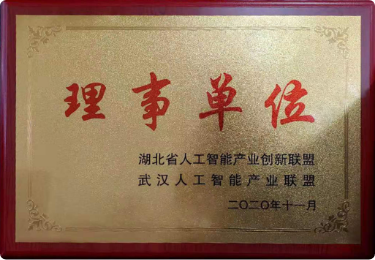 理事单位
湖北省人工智能产业创新联盟
武汉人工智能产业联盟
二〇二〇年十一月